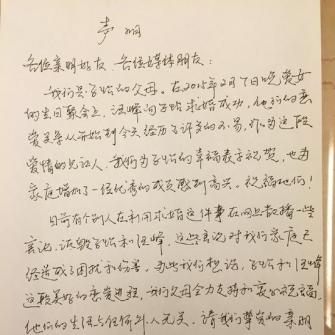 声明
各位亲朋好友 各位媒体朋友：
我们是子怡的父母。在2015年2月7日晚爱女
的生日聚会上，汪峰向子怡求婚成功，他们的恋
爱关系从开始到今天经历了许多的不易，作为这段
爱情的见证人，我们为子怡的幸福表示祝贺，也为
家庭增加了一位优秀的成员感到高兴。祝福他们！
目前有个别人在利用求婚这件事在网上散播一些
言论，诋毁子怡和汪峰，这些言论对我们家庭已
经造成了困扰和伤害。为此我们想说，子怡和汪峰
这段美好的恋爱进程，我们父母全力支持和衷心祝福，
他们的生活与任何外人无关，请我们挚爱的亲朋